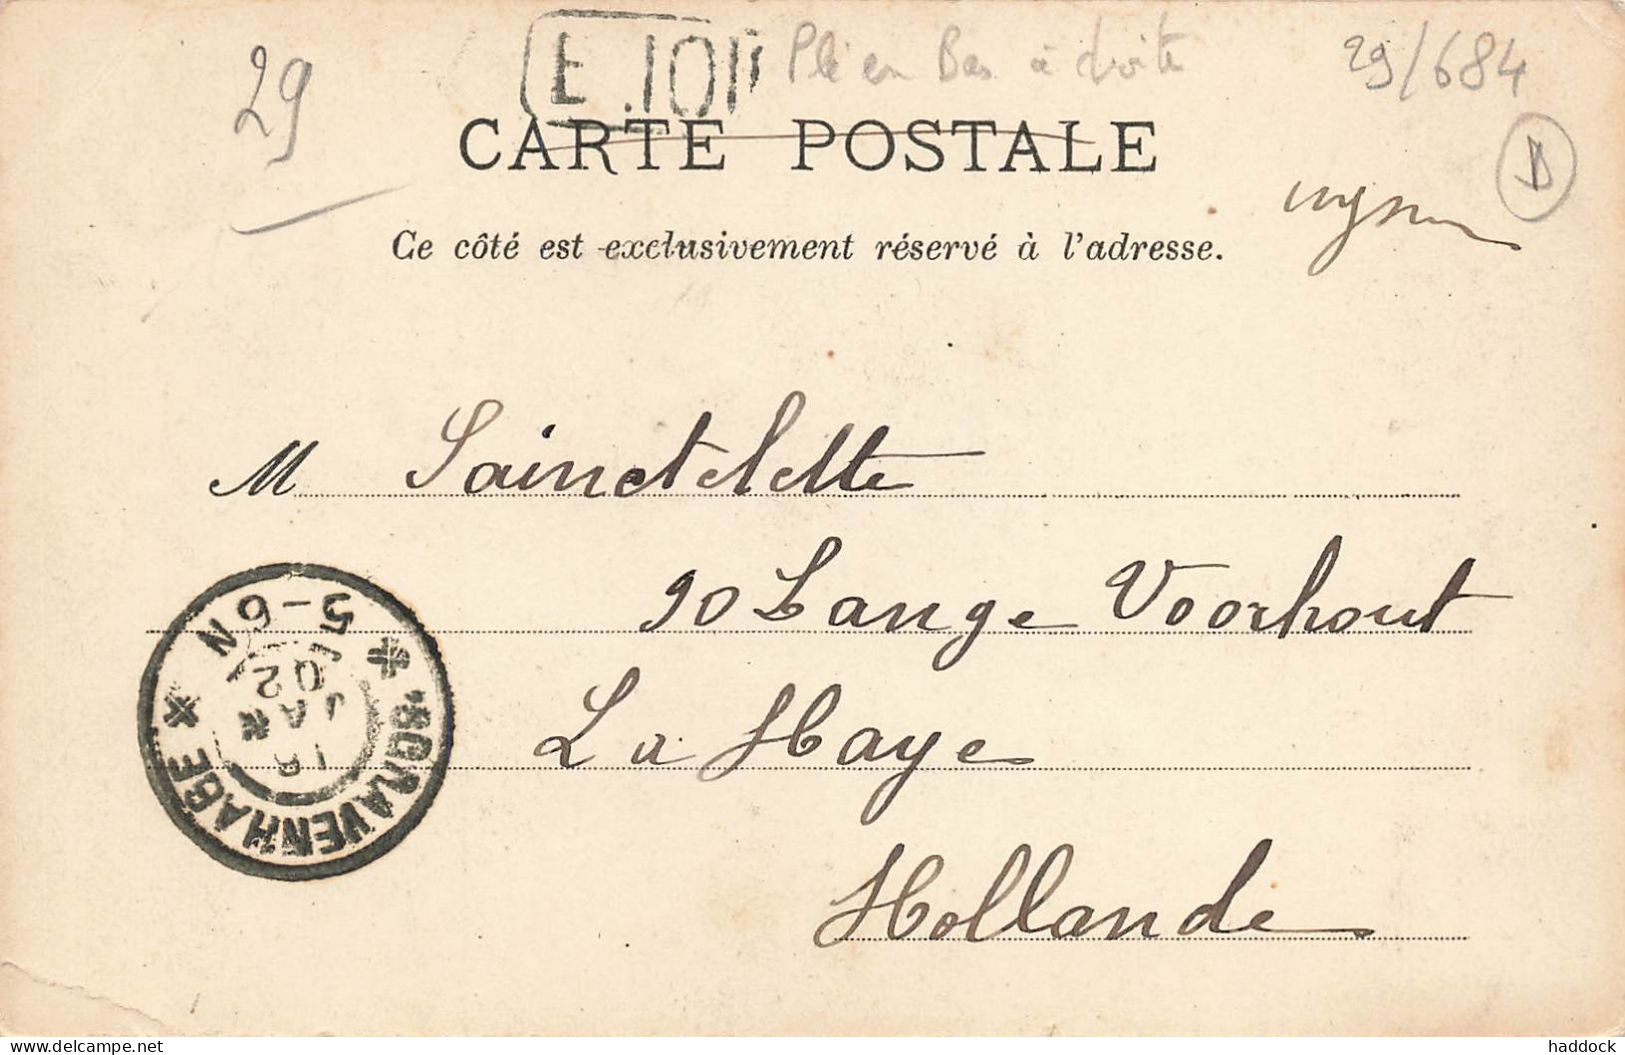 29
E. 101
Plié en Bas à droite
29/684
B
CARTE POSTALE
Ce côté est exclusivement réservé à l'adresse.
M Sainctelette
90 Lange Voorhout
La Haye
Hollande
'SGRAVENHAGE
5-6N
16
JA
02
www.delcampe.net
haddock